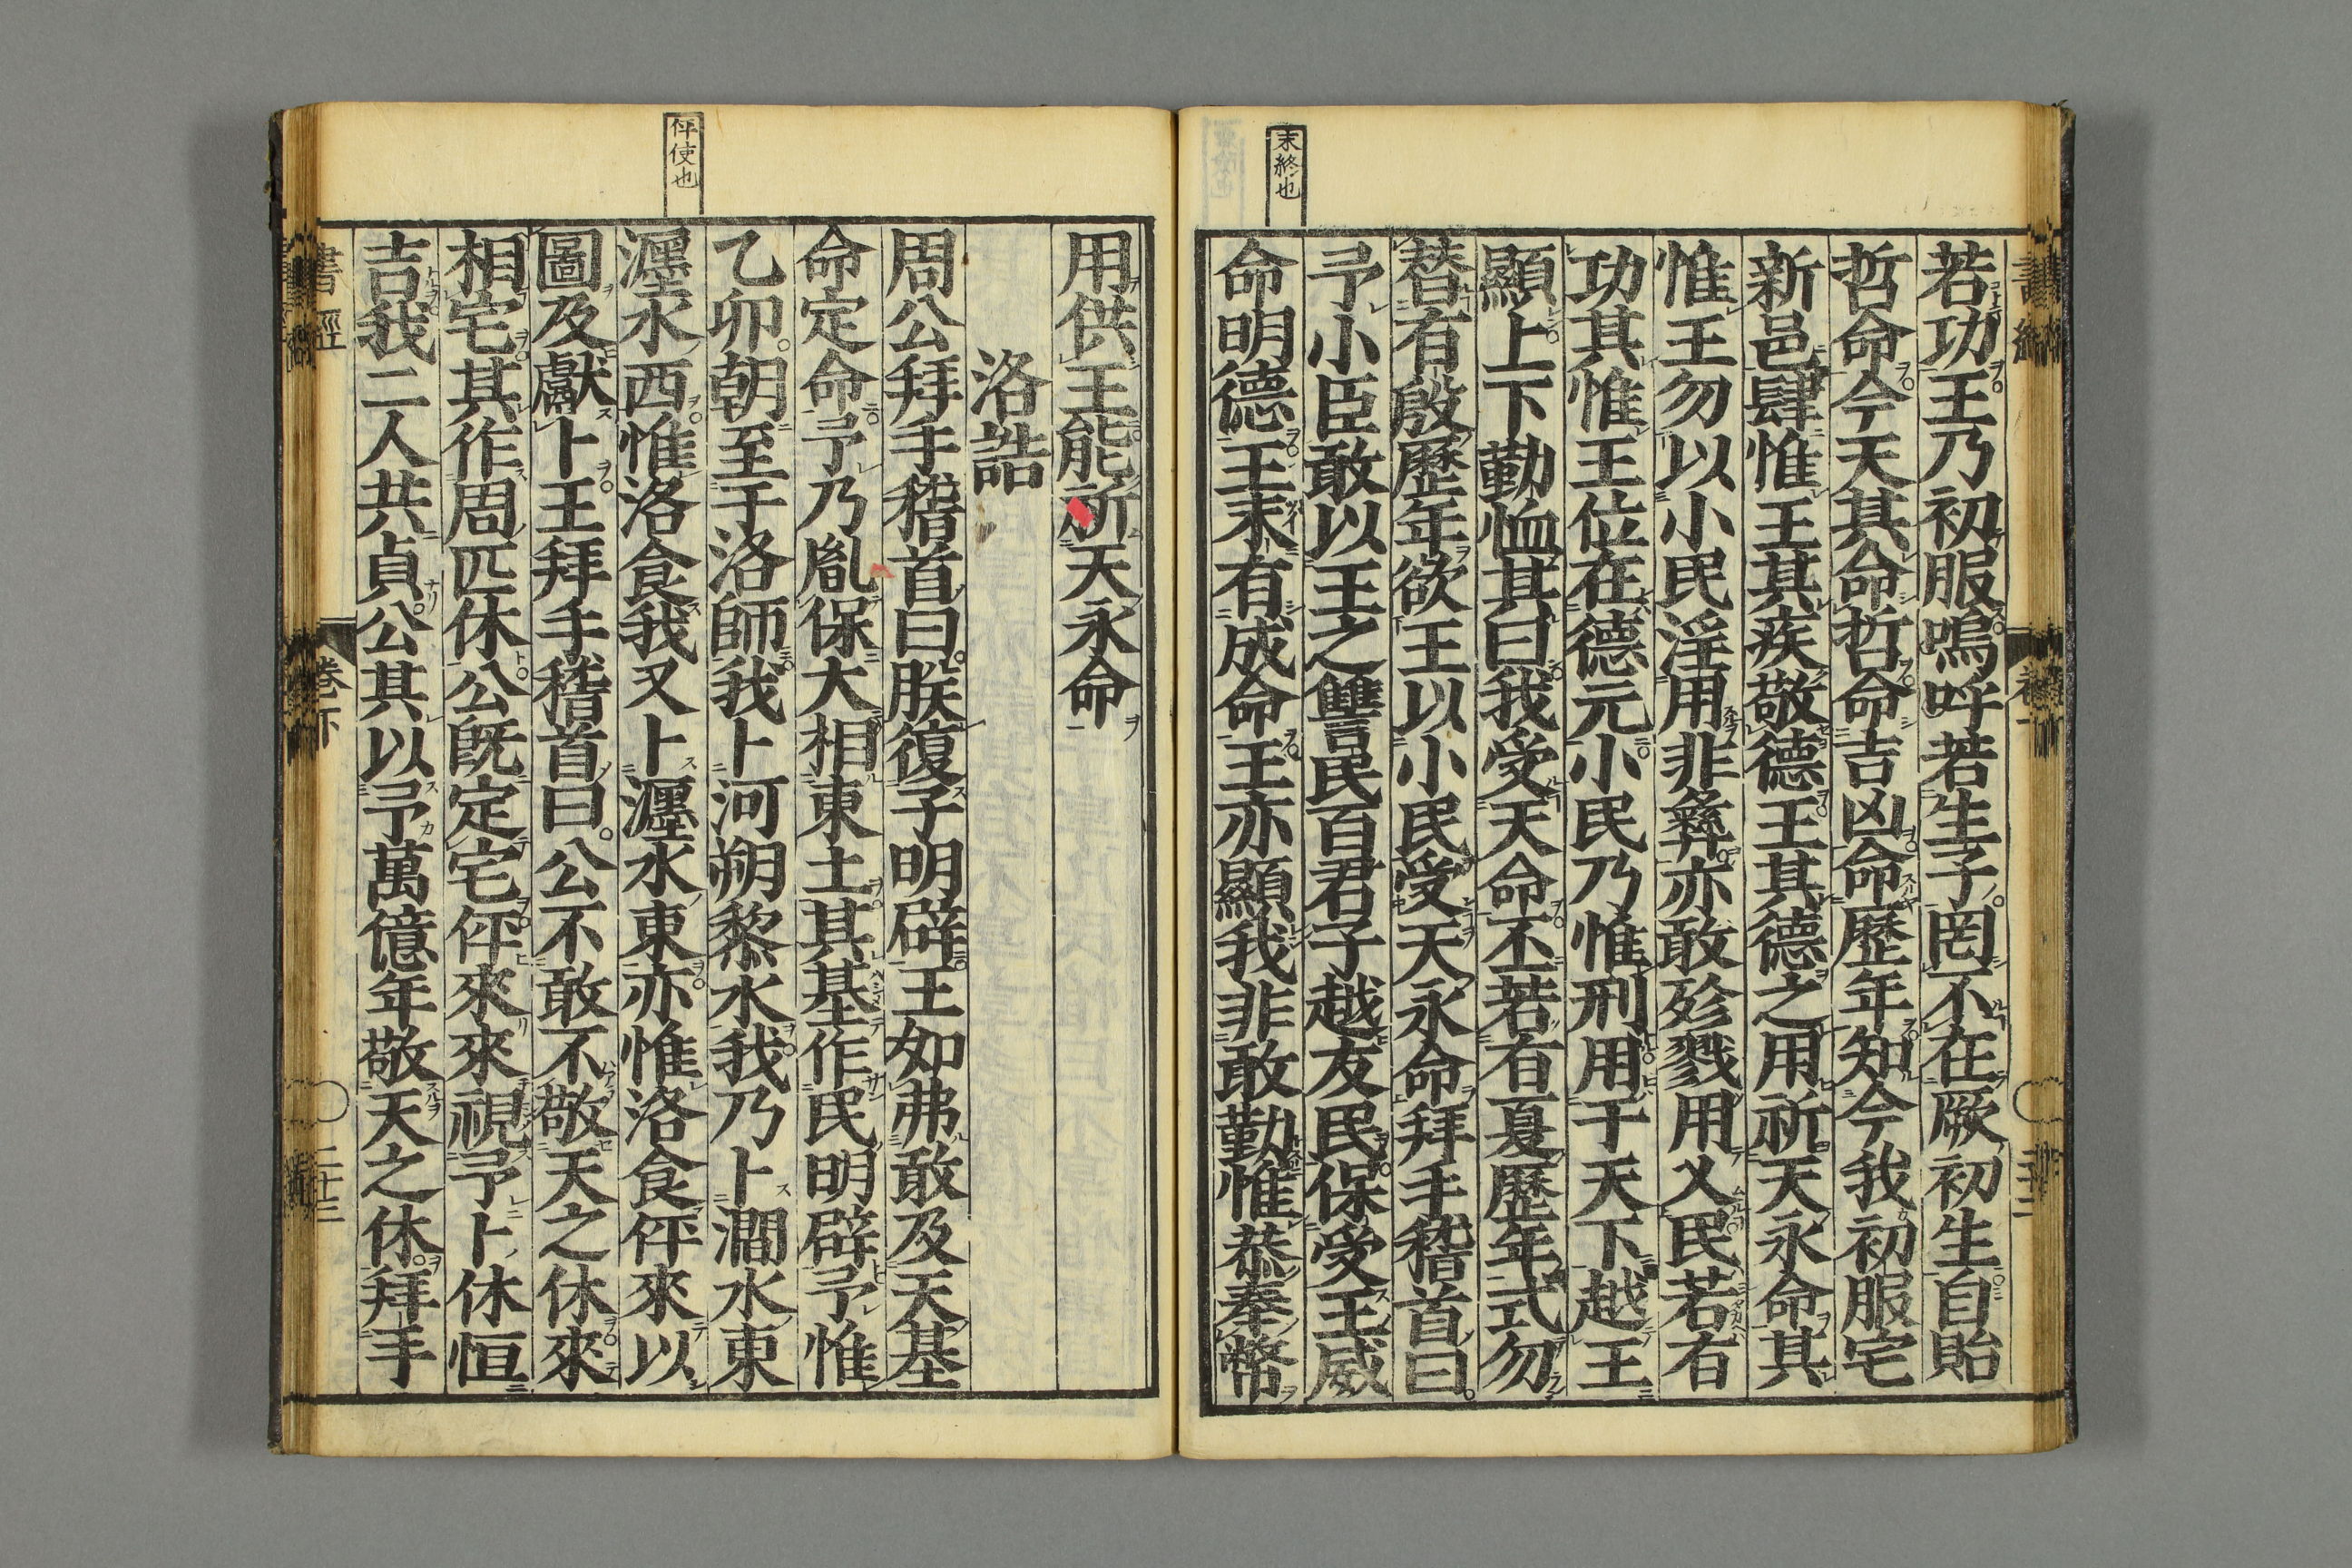 末終也
若功王乃初服嗚呼若生子罔不在厥初生自貽
哲命今天其命哲命吉凶命歷年知今我初服宅
新邑肆惟王其疾敬德王其德之用祈天永命其
惟王勿以小民淫用非彝亦敢殄戮用乂民若有
功其惟王位在德元小民乃惟刑用于天下越王
顯上下勤恤其曰我受天命丕若有夏歷年式勿
替有殷歷年欲王以小民受天永命拜手稽首曰
予小臣敢以王之讐民百君子越友民保受王威
命明德王末有成命王亦顯我非敢勤惟恭奉幣
伻使也
用供王能祈天永命
洛誥
周公拜手稽首曰朕復子明辟王如弗敢及天基
命定命予乃胤保大相東土其基作民明辟予惟
乙卯朝至于洛師我卜河朔黎水我乃卜澗水東
瀍水西惟洛食我又卜瀍水東亦惟洛食伻來以
圖及獻卜王拜手稽首曰公不敢不敬天之休來
相宅其作周匹休公既定宅伻來來視予卜休恒
吉我二人共貞公其以予萬億年敬天之休拜手
書經 卷下 二十三